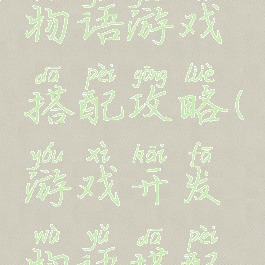 物语游戏
dā pèi gōng lüè
搭配攻略(
yóu xì kāi fā
游戏开发
wù yǔ dā pèi
物语搭配